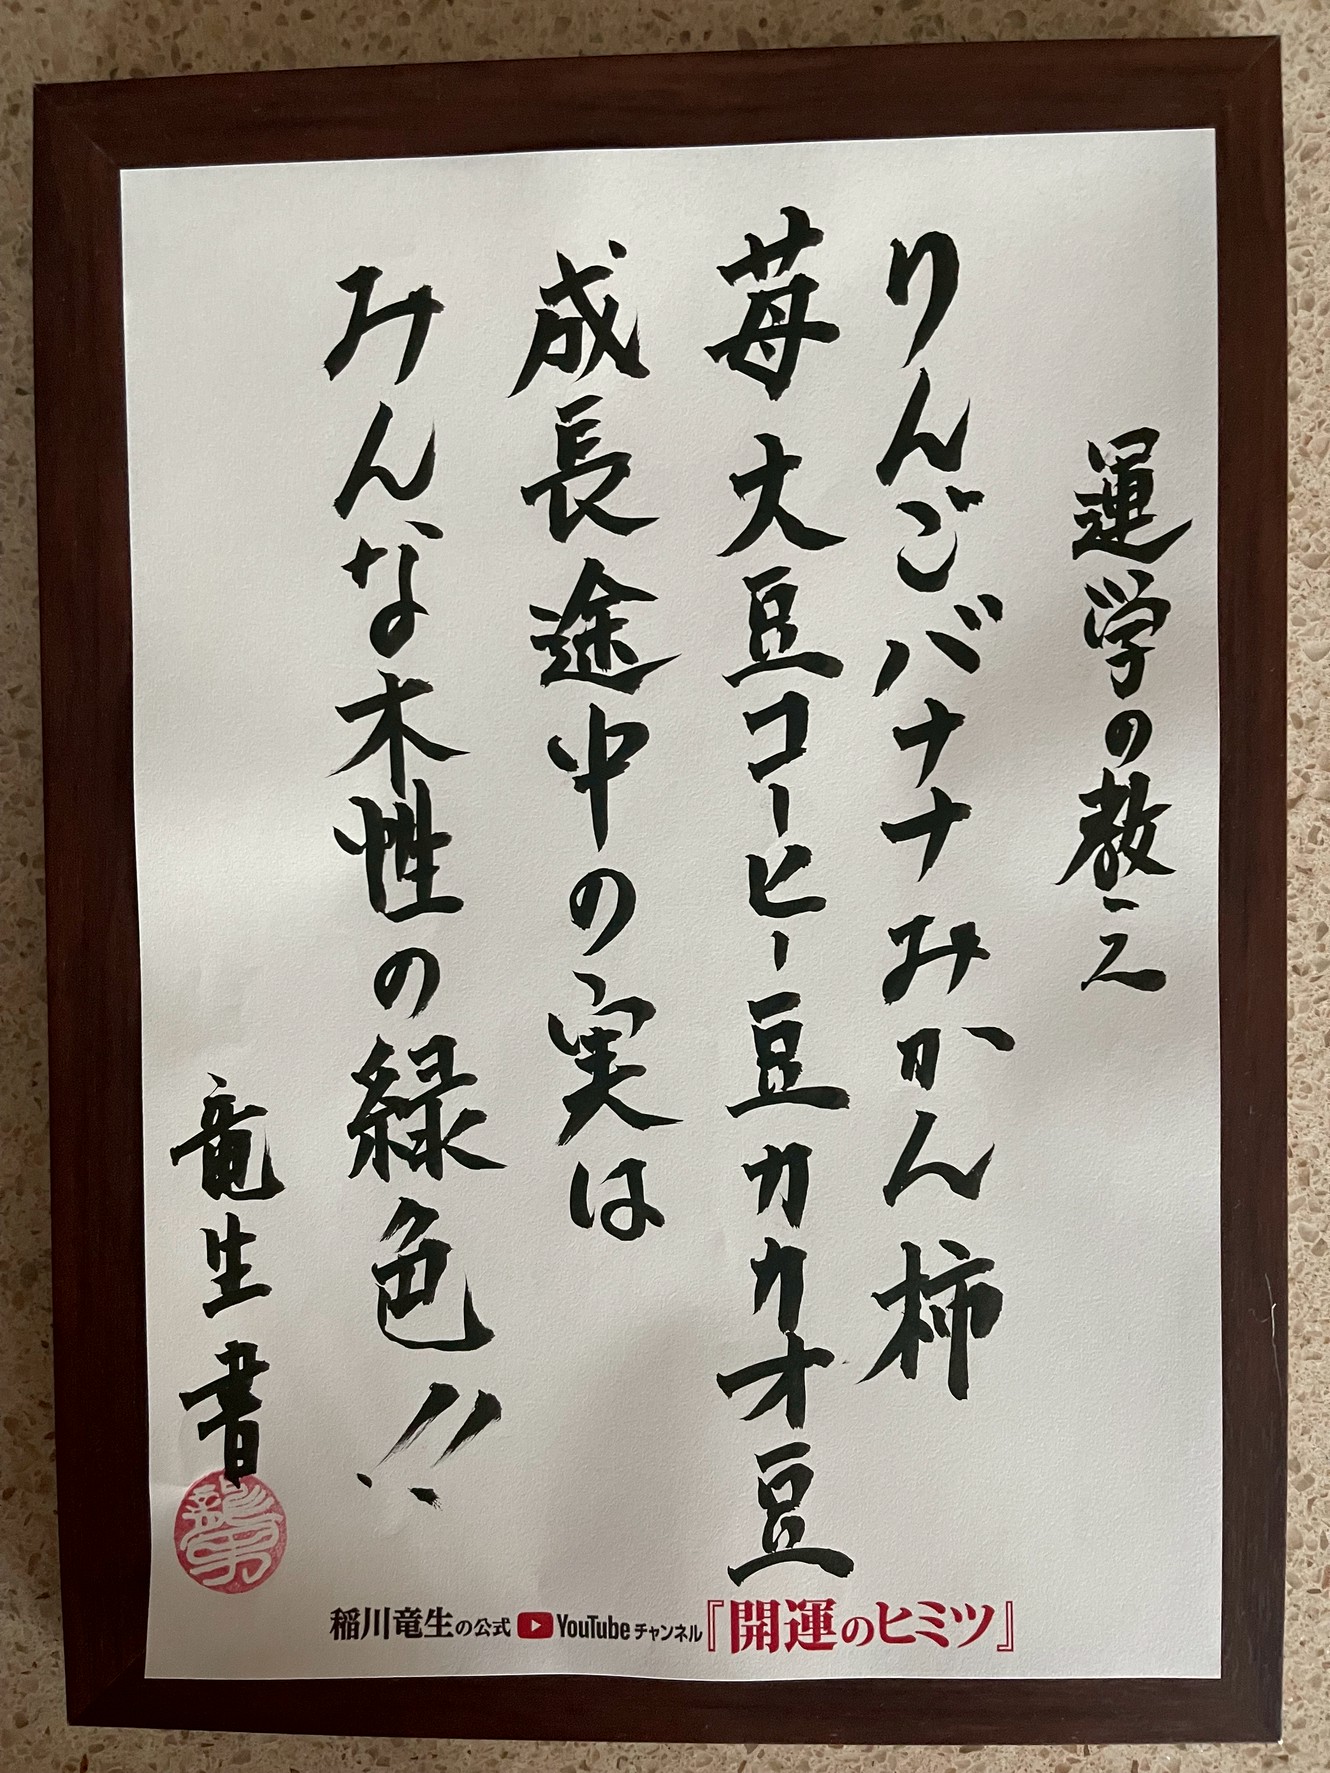 運学の教え
りんごバナナみかん柿
苺大豆コーヒー豆カカオ豆
成長途中の実は
みんな木性の緑色!!
竜生書
稲川竜生の公式 YouTubeチャンネル『開運のヒミツ』